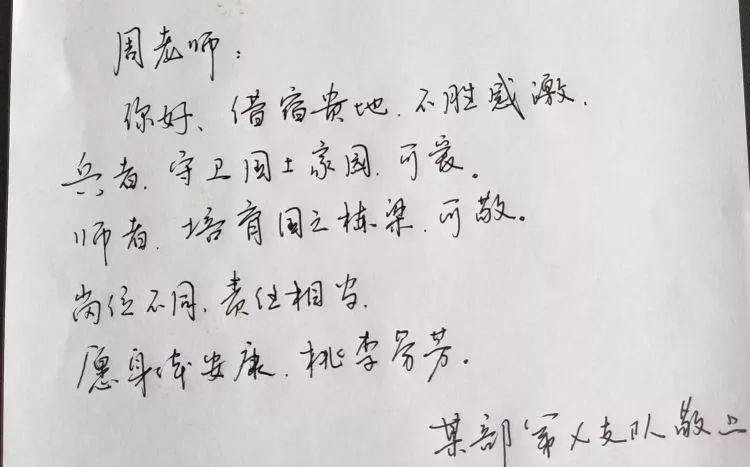 周老师：
你好、借宿贵地、不胜感激、
兵者、守卫国土家园、可爱。
师者、培育国之栋梁、可敬。
岗位不同、责任相当、
愿身体安康、桃李芬芳。
某部第X支队敬上